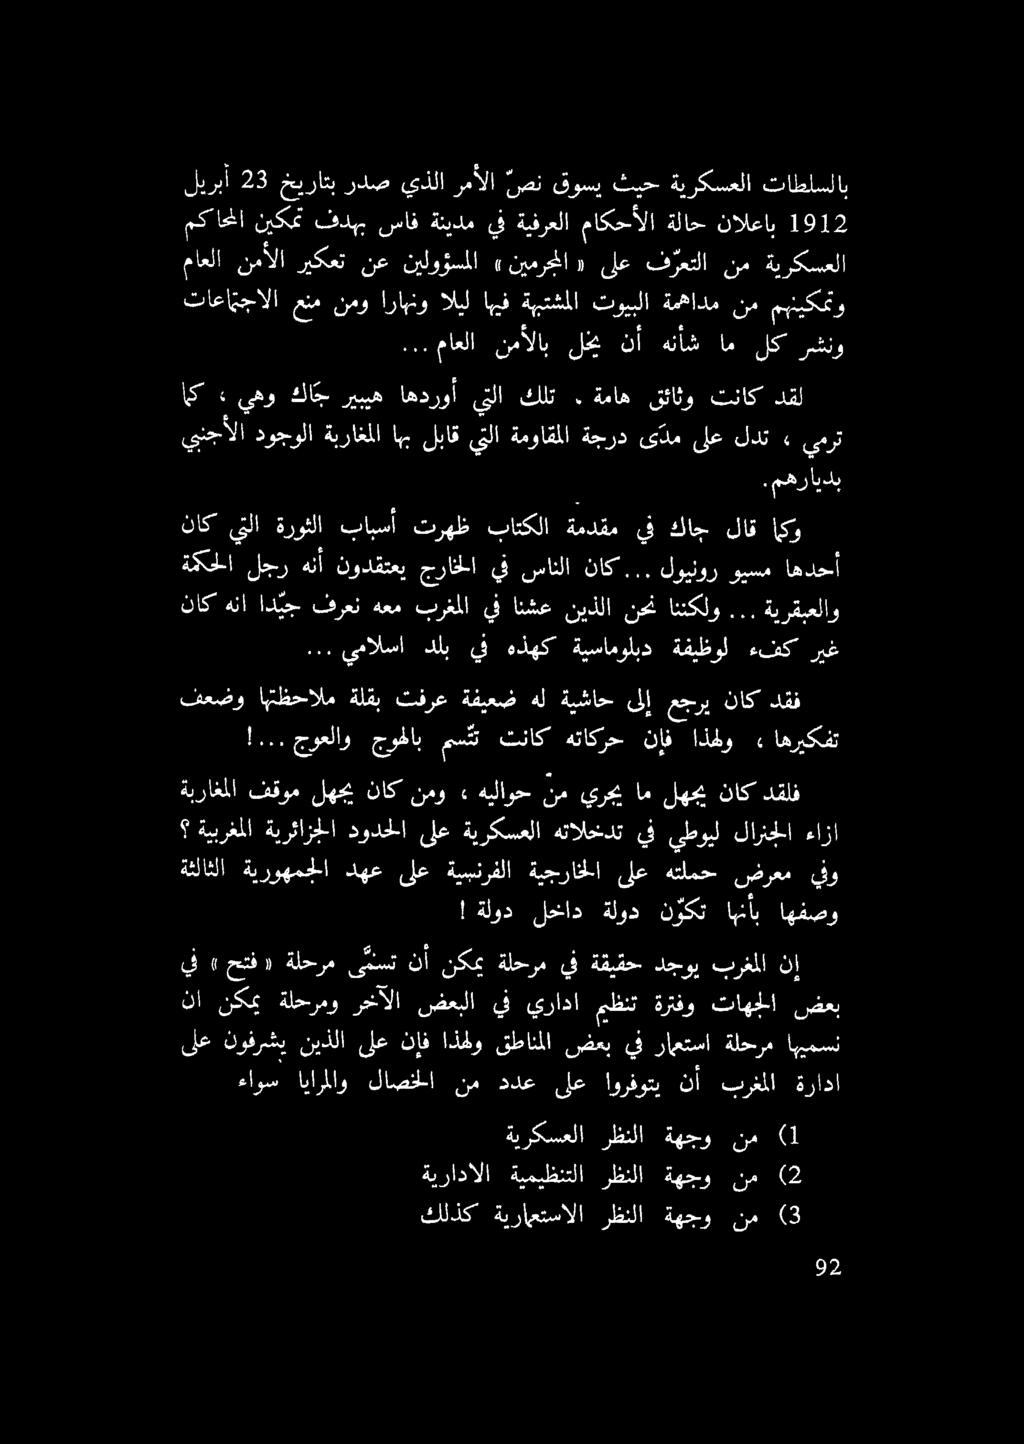 بالسلطات العسكرية حيث يسوق نصّ الأمر الذي صدر بتاريخ 23 أبريل
1912 باعلان حالة الأحكام العرفية في مدينة فاس بهدف تمكين المحاكم
العسكرية من التعرّف على « المجرمين » المسؤولين عن تعكير الأمن العام
وتمكينهم من مداهمة البيوت المشتبهة فيها ليلا ونهارا ومن منع الاجتماعات
ونشر كل ما شأنه أن يخل بالأمن العام ...
لقد كانت وثائق هامة . تلك التي أوردها هيبير جَاك وهي ، كما
ترمي ، تدل على مدَى درجة المقاومة التي قابل بها المغاربة الوجود الأجنبي
بديارهم.
وكما قال جاك في مقدمة الكتاب ظهرت أسباب الثورة التي كان
أحدها مسيو رونيول ... كان الناس في الخارج يعتقدون أنه رجل الحكمة
والعبقرية ... ولكننا نحن الذين عشنا في المغرب معه نعرف جيّدا انه كان
غير كفء لوظيفة دبلوماسية كهذه في بلد اسلامي ...
فقد كان يرجع إلى حاشية له ضعيفة عرفت بقلة ملاحظتها وضعف
تفكيرها ، ولهذا فإن حركاته كانت تتّسم بالهوج والعوج ... !
فلقد كان يجهل ما يجري منْ حواليه ، ومن كان يجهل موقف المغاربة
ازاء الجنرال ليوطي في تدخلاته العسكرية على الحدود الجزائرية المغربية ؟
وفي معرض حملته على الخارجية الفرنسية على عهد الجمهورية الثالثة
وصفها بأنها تكوّن دولة داخل دولة !
إن المغرب يوجد حقيقة في مرحلة يمكن أن تسمَّى مرحلة « فتح » في
بعض الجهات وفترة تنظيم اداري في البعض الآخر ومرحلة يمكن ان
نسميها مرحلة استعمار في بعض المناطق ولهذا فإن على الذين يشرفون على
ادارة المغرب أن يتوفروا على عدد من الخصال والمزايا سواء
1) من وجهة النظر العسكرية
2) من وجهة النظر التنظيمية الادارية
3) من وجهة النظر الاستعمارية كذلك
92